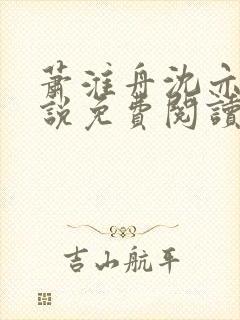 蕭淮舟沈亦
說免費閱讀
吉山航平